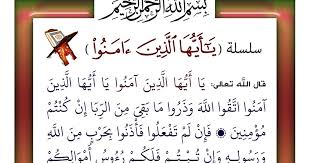 بِسْمِ اللَّهِ الرَّحْمَٰنِ الرَّحِيمِ
سلسلة ﴿ يَٰٓأَيُّهَا ٱلَّذِينَ ءَامَنُوا۟ ﴾
قال الله تعالى: يَا أَيُّهَا الَّذِينَ آمَنُوا يَا أَيُّهَا الَّذِينَ
آمَنُوا اتَّقُوا اللَّهَ وَذَرُوا مَا بَقِيَ مِنَ الرِّبَا إِنْ كُنْتُمْ
مُؤْمِنِينَ ۞ فَإِنْ لَمْ تَفْعَلُوا فَأْذَنُوا بِحَرْبٍ مِنَ اللَّهِ
وَرَسُولِهِ وَإِنْ تُبْتُمْ فَلَكُمْ رُءُوسُ أَمْوَالِكُمْ